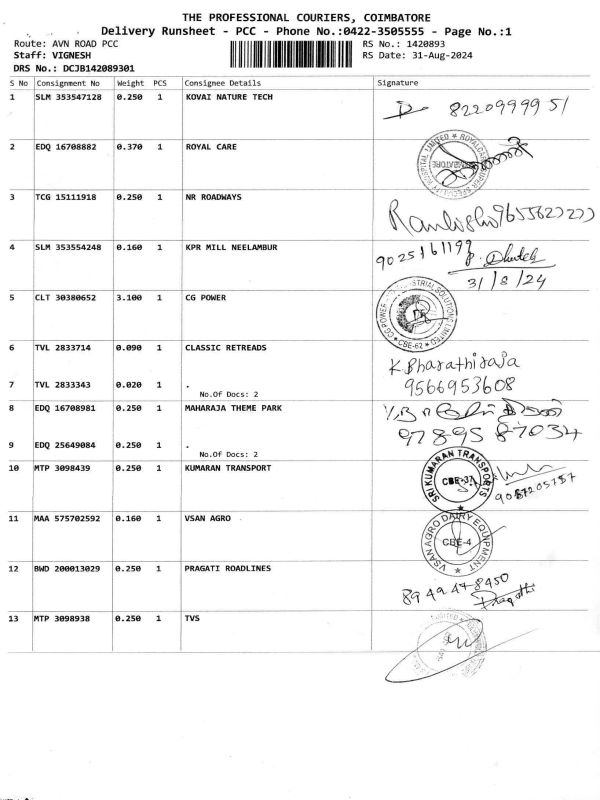 THE PROFESSIONAL COURIERS, COIMBATORE
Delivery Runsheet - PCC - Phone No.:0422-3505555 - Page No.:1
Route: AVN ROAD PCC RS No.: 1420893
Staff: VIGNESH RS Date: 31-Aug-2024
DRS No.: DCJB142089301
S No Consignment No Weight PCS Consignee Details Signature
1 SLM 353547128 0.250 1 KOVAI NATURE TECH 8220999951
2 EDQ 16708882 0.370 1 ROYAL CARE
3 TCG 15111918 0.250 1 NR ROADWAYS
4 SLM 353554248 0.160 1 KPR MILL NEELAMBUR
31/8/24
5 CLT 30380652 3.100 1 CG POWER
CBE-62
6 TVL 2833714 0.090 1 CLASSIC RETREADS K Bharathiraja
7 TVL 2833343 0.020 1 . 9566953608
No.Of Docs: 2
8 EDQ 16708981 0.250 1 MAHARAJA THEME PARK
97895 87034
9 EDQ 25649084 0.250 1 .
No.Of Docs: 2
10 MTP 3098439 0.250 1 KUMARAN TRANSPORT SRI KUMARAN TRANSPORTS CBE-37
11 MAA 575702592 0.160 1 VSAN AGRO VSAN AGRO DAIRY EQUIPMENT CBE-4
12 BWD 200013029 0.250 1 PRAGATI ROADLINES
8949478450
13 MTP 3098938 0.250 1 TVS